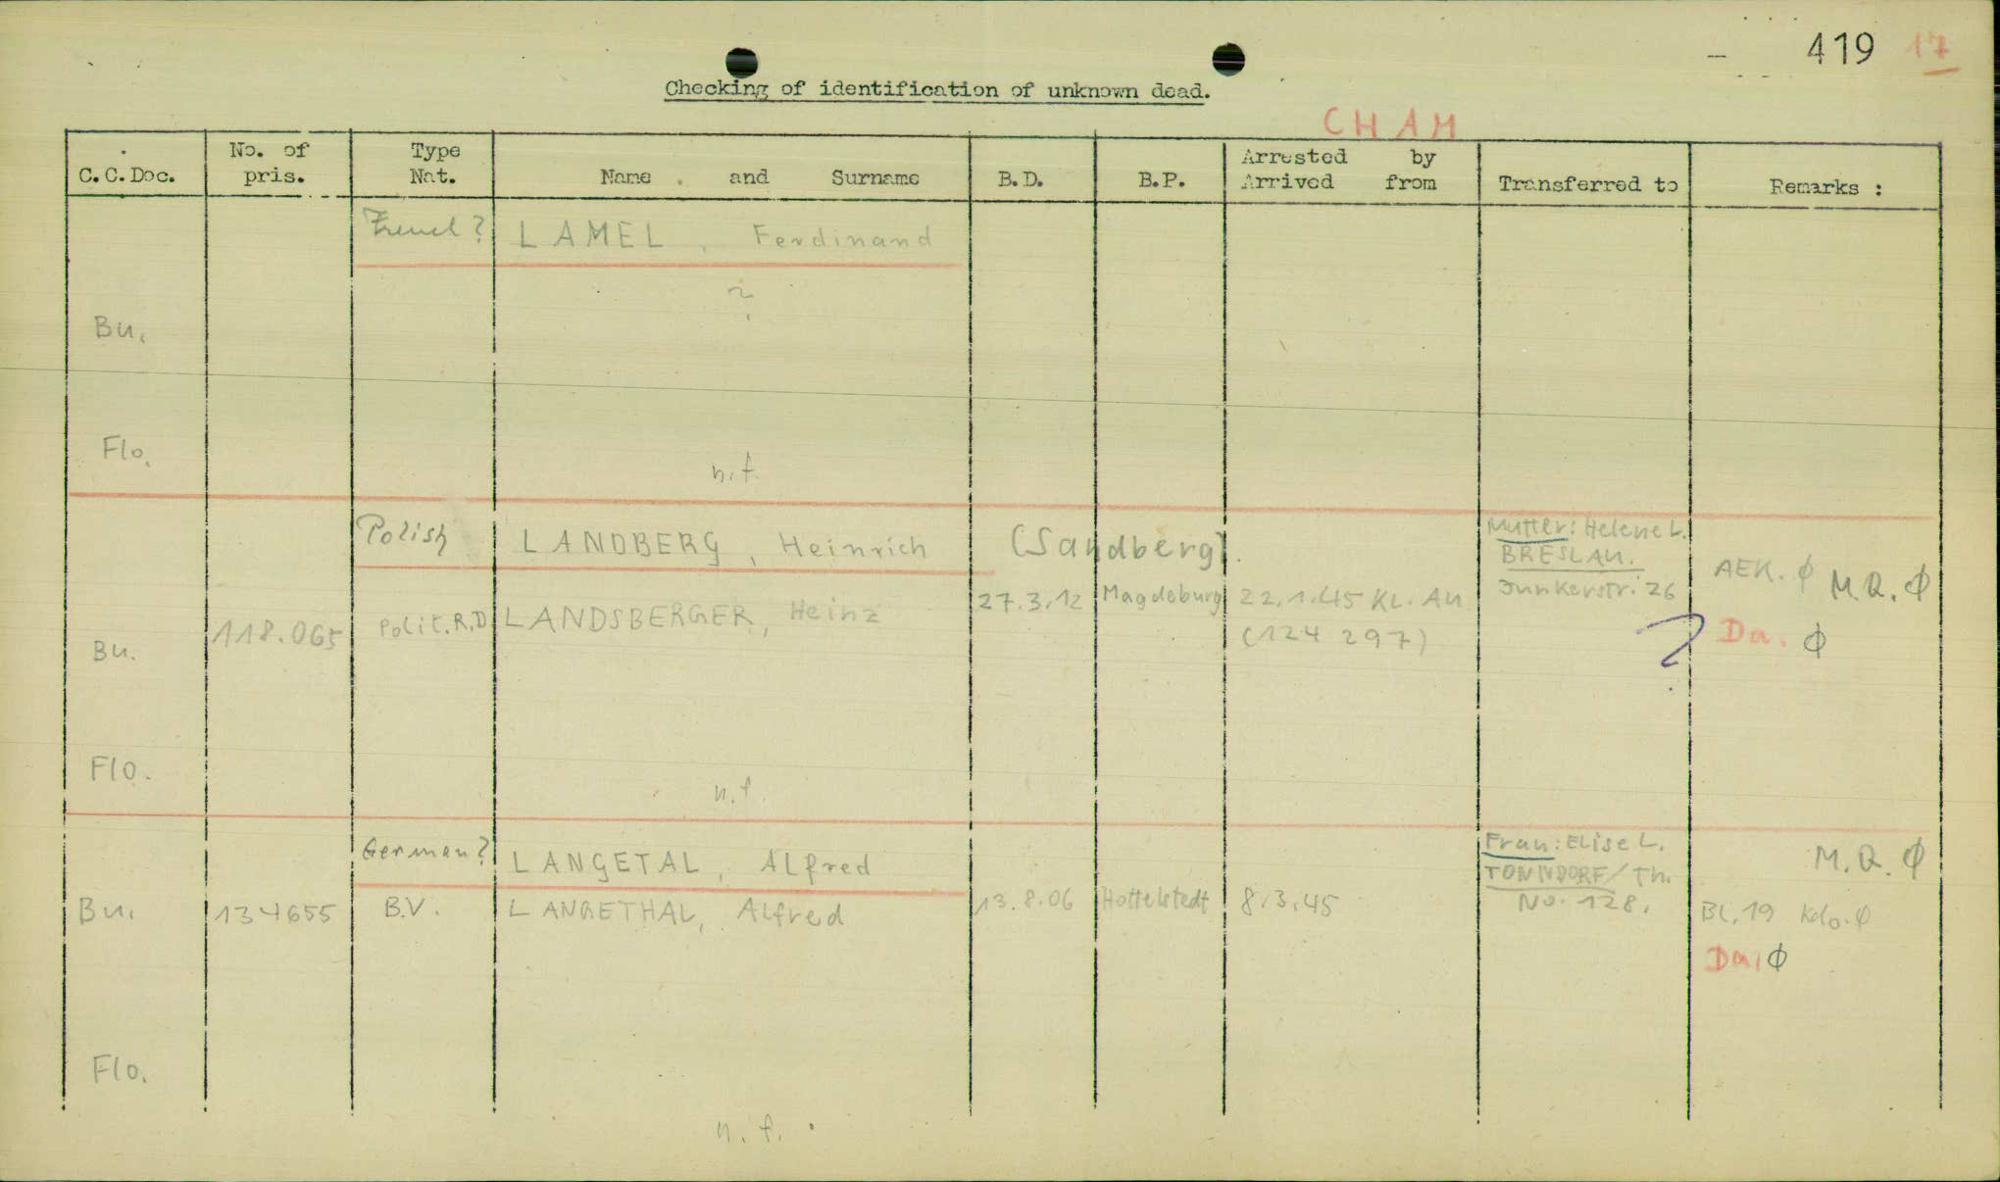 419 17
Checking of identification of unknown dead.
CHAM
C.C.Doc. No. of pris. Type Nat. Name and Surname B.D. B.P. Arrested by Arrived from Transferred to Remarks :
French? LAMEL, Ferdinand
?
Bu.
Flo. n.f.
Polish LANDBERG, Heinrich (Sandberg).
Mutter: Helene L.
BRESLAU.
Junkerstr. 26
AEK. ϕ M.Q. ϕ
Bu. 118.065 Polit.R.D LANDSBERGER, Heinz 27.3.12 Magdeburg 22.1.45 KL. Au
(124 297)
? Da. ϕ
Flo. n.f.
German? LANGETAL, Alfred
Frau: Elise L.
TONNDORF/Th.
No. 128.
M.Q. ϕ
Bu. 134655 B.V. LANGETHAL, Alfred 13.8.06 Hottelstedt 8.3.45
Bl.19 Kdo. ϕ
Da. ϕ
Flo.
n.f.